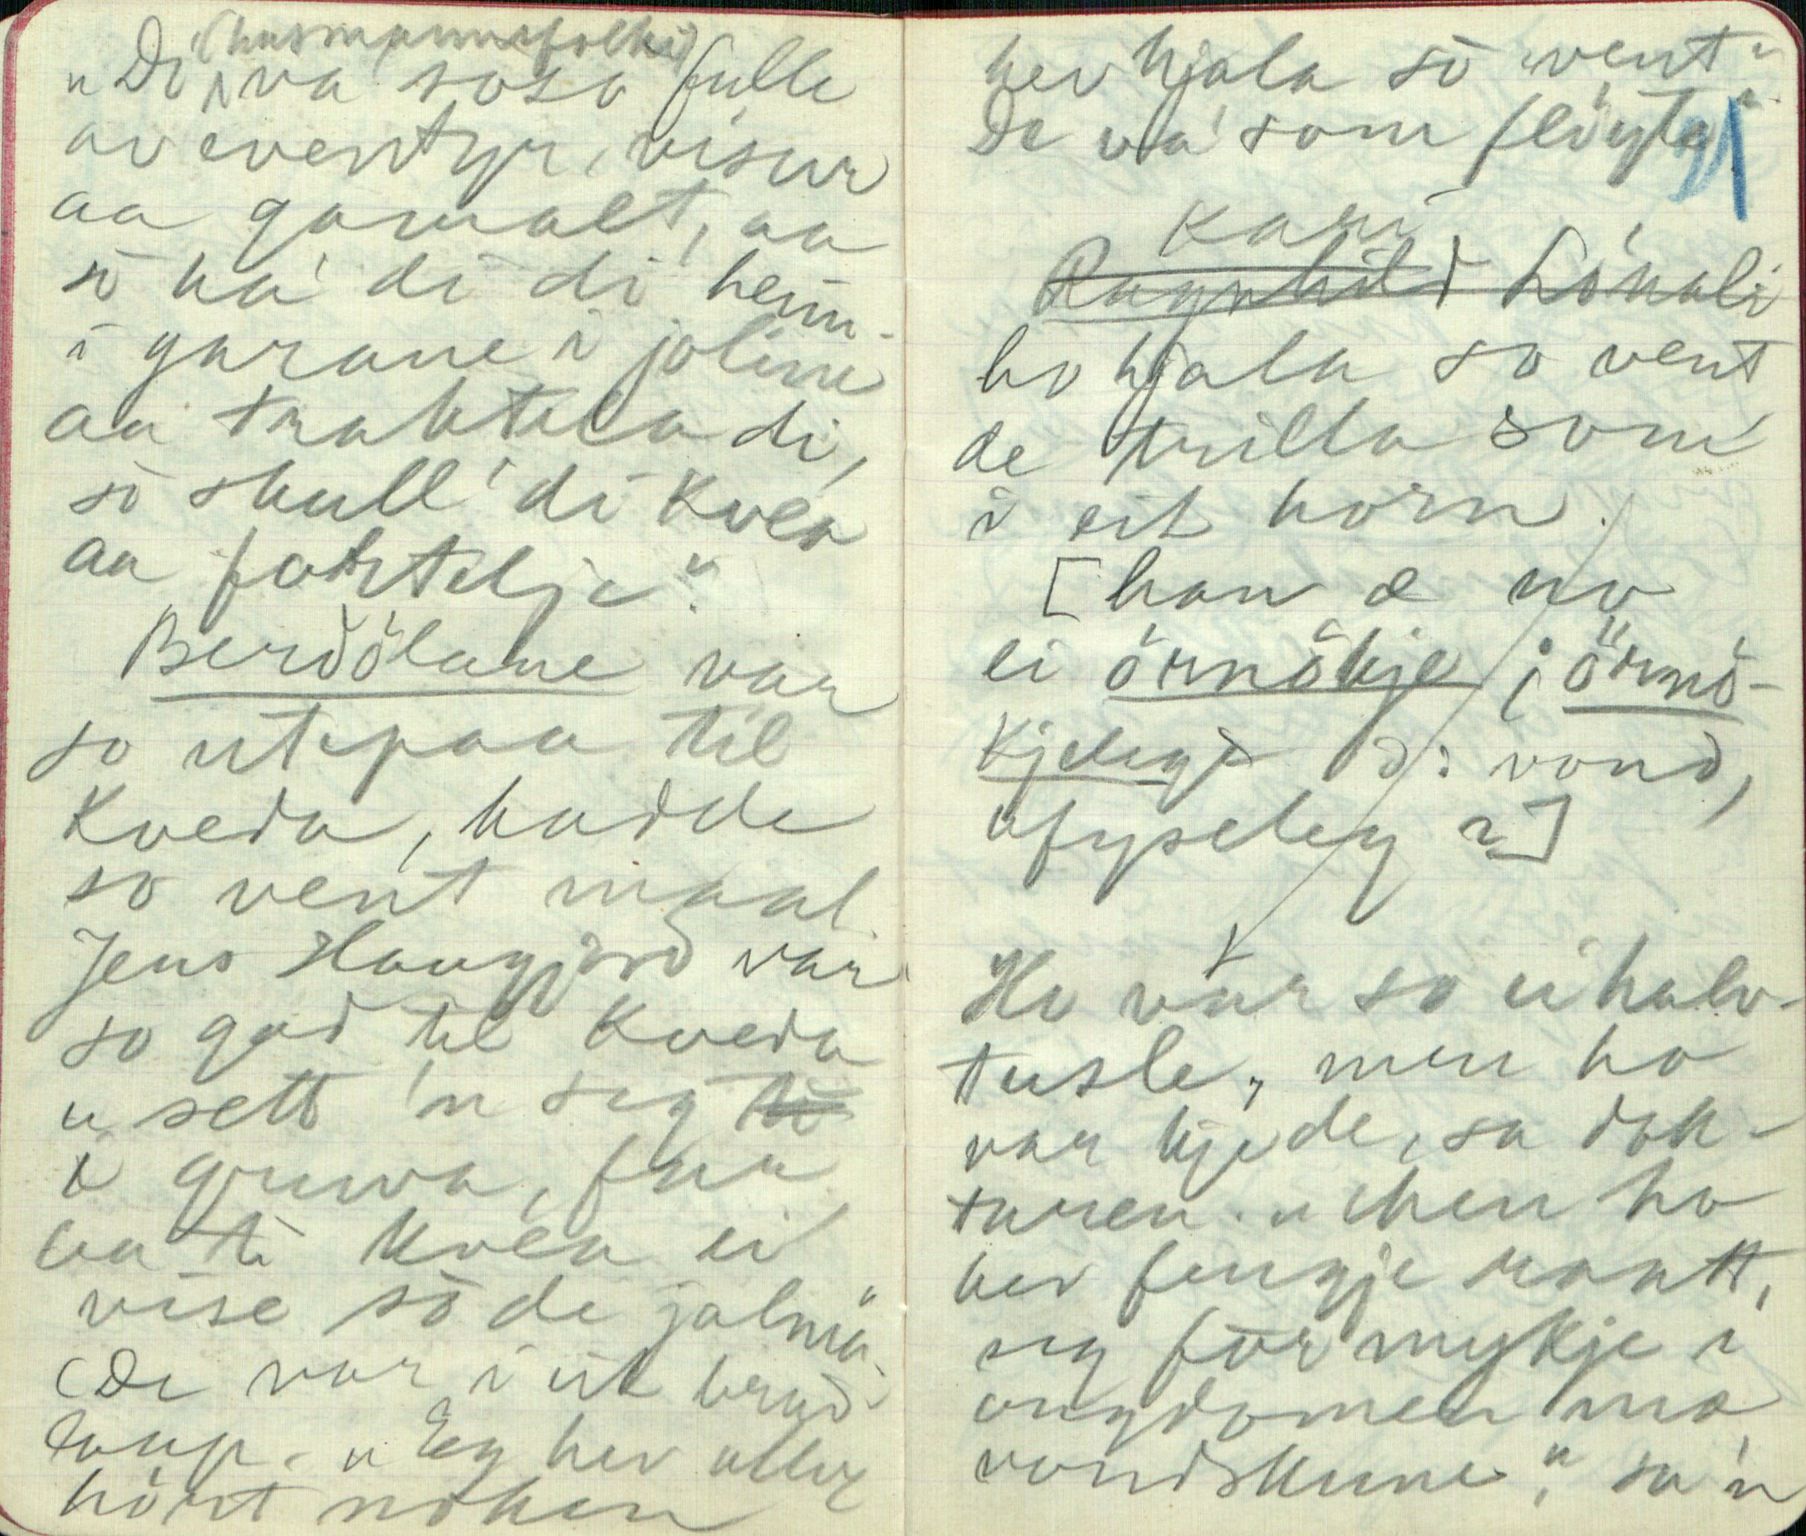 (husmannsfolki)
"Di va' soso fulle
av eventyr, visur
aa gamalt, aa
sò ha' di di heim
i garane i jolini
aa traktera di,
sò skull' di kvea
aa fortelje".
Berdölane var
so utepaa til
kveda, hadde
so vent maal
Jens Haugjord var
so god til kveda
"sett 'n seg
i gruva, fær
aa te kvea ei
vise sò de jalma"
(De var i eit bryd-
laup. "Eg hev aller
hört noken
hev hjala sò vent"
De va' som flöyta"
91
Kari
Ragnhild Lönali
ho hjala so vent
de trilla som
i eit horn.
[han æ no
ei örnökje; örnö-
kjelege ɔ: vond,
ufyseleg ?]
Ho var so ei halv-
tusle, men ho
var kjede, sa dok-
turen. "Men ho
hev fengje raatt
seg for mykje i
ungdomen mæ
vondskune", sa 'n